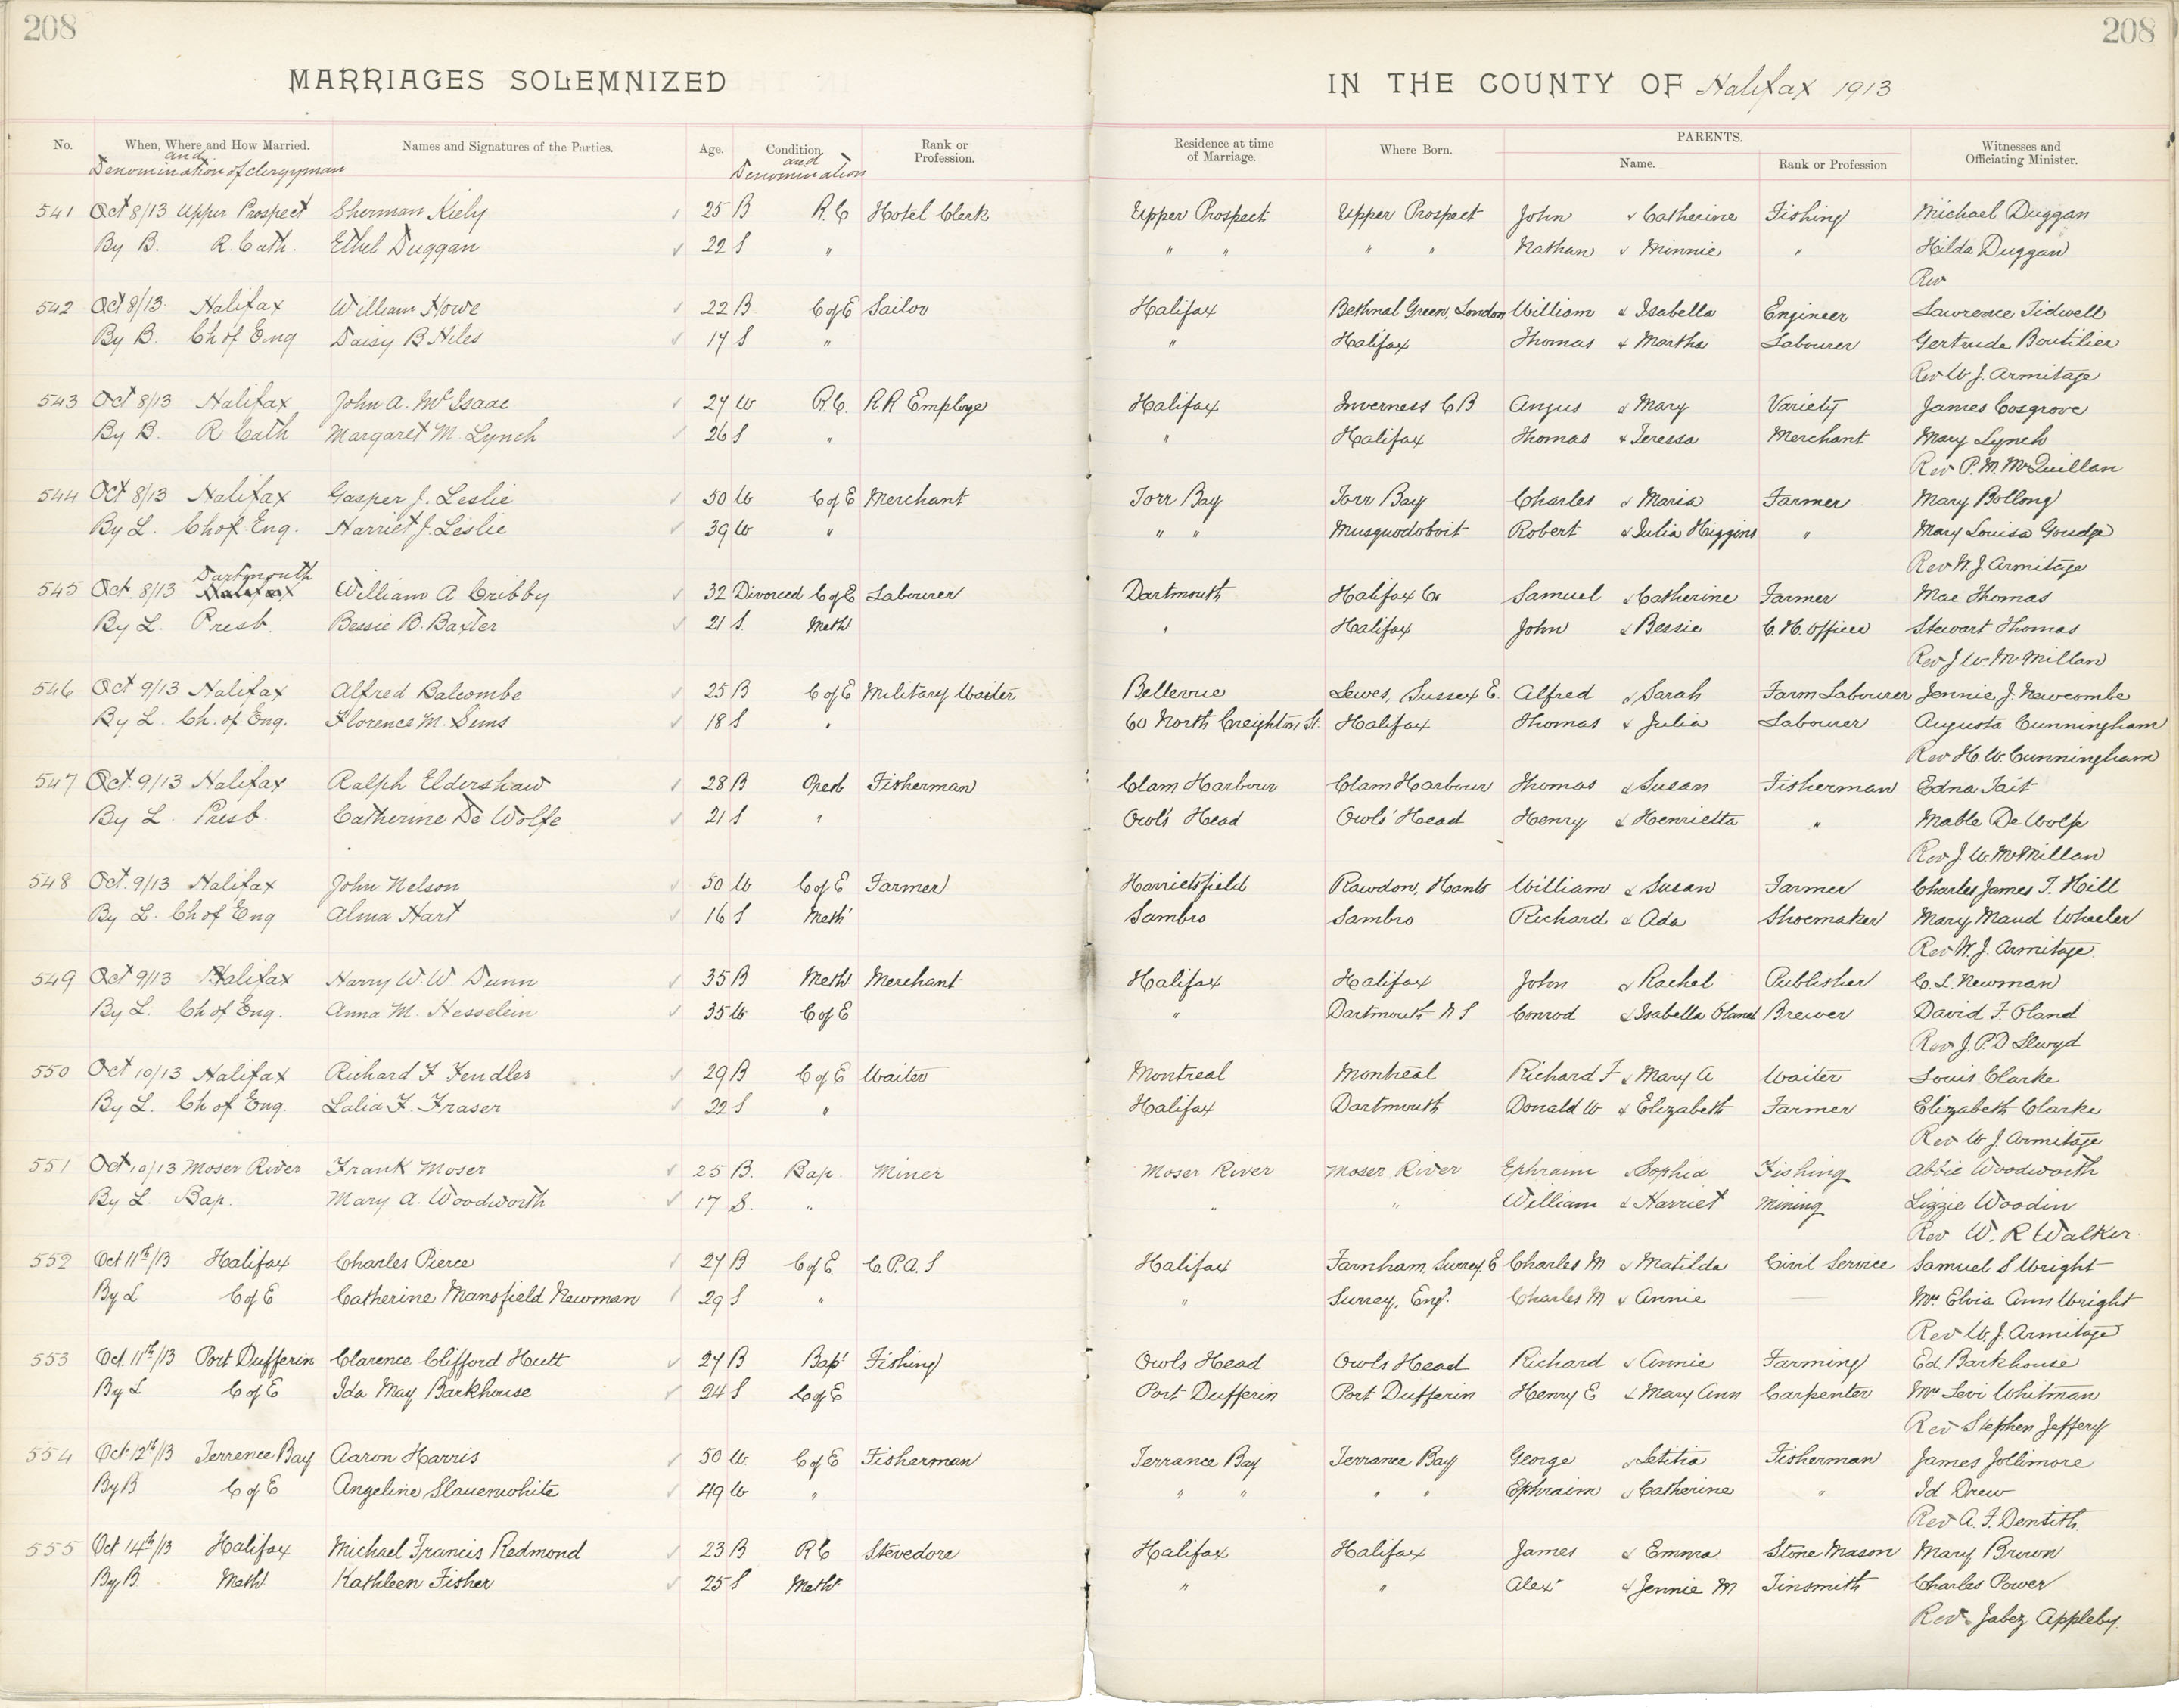 208 208
MARRIAGES SOLEMNIZED IN THE COUNTY OF Halifax 1913
No. When, Where and How Married. Names and Signatures of the Parties. Age. Condition. Rank or Profession. Residence at time of Marriage. Where Born. PARENTS. Name. Rank or Profession Witnesses and Officiating Minister.
and Denomination of clergyman and Denomination
541 Oct 8/13 Upper Prospect Sherman Kiely 25 B R.C Hotel Clerk Upper Prospect Upper Prospect John & Catherine Fishing Michael Duggan
By B. R. Cath. Ethel Duggan 22 S " " " " " Nathan & Minnie " Hilda Duggan
Rev
542 Oct 8/13 Halifax William Howe 22 B C of E Sailor Halifax Bethnal Green, London William & Isabella Engineer Lawrence Tidwell
By B. Ch of Eng Daisy B Niles 19 S " " Halifax Thomas & Martha Labourer Gertrude Boutilier
Rev W. J. Armitage
543 Oct 8/13 Halifax John A. McIsaac 27 W R.C. R R Employe Halifax Inverness C B Angus & Mary Variety James Cosgrove
By B. R Cath Margaret M. Lynch 26 S " " Halifax Thomas & Teressa Merchant Mary Lynch
Rev P. M. McQuillan
544 Oct 8/13 Halifax Gasper J. Leslie 50 W C of E Merchant Torr Bay Torr Bay Charles & Maria Farmer Mary Bollong
By L. Ch of Eng. Harriet J. Leslie 39 W " " " Musquodoboit Robert & Julia Higgins " Mary Louisa Goudge
Rev W. J. Armitage
545 Oct. 8/13 Halifax Dartmouth William A Cribby 32 Divorced C of E Labourer Dartmouth Halifax Co Samuel & Catherine Farmer Mae Thomas
By L. Presb. Bessie B. Baxter 21 S. Meth " Halifax John & Bessie C. H. Officer Stewart Thomas
Rev J. W. McMillan
546 Oct 9/13 Halifax Alfred Balcombe 25 B C of E Military Waiter Bellevue Lewes, Sussex E. Alfred & Sarah Farm Labourer Jennie J. Newcombe
By L. Ch. of Eng. Florence M. Sims 18 S " 60 North Creighton St. Halifax Thomas & Julia Labourer Augusta Cunningham
Rev H. W. Cunningham
547 Oct. 9/13 Halifax Ralph Eldershaw 28 B Presb Fisherman Clam Harbour Clam Harbour Thomas & Susan Fisherman Edna Tait
By L. Presb. Catherine De Wolfe 21 S " Owl's Head Owls' Head Henry & Henrietta " Mable De Wolfe
Rev J. W. McMillan
548 Oct. 9/13 Halifax John Nelson 50 W C of E Farmer Harrietsfield Rawdon, Hants William & Susan Farmer Charles James T. Hill
By L. Ch of Eng Alma Hart 16 S Meth Sambro Sambro Richard & Ada Shoemaker Mary Maud Wheeler
Rev W. J. Armitage.
549 Oct 9/13 Halifax Harry W. W Dunn 35 B Meth Merchant Halifax Halifax John & Rachel Publisher C. L. Newman
By L. Ch of Eng. Anna M. Hesselein 35 W C of E " Dartmouth N S Conrod & Isabella Oland Brewer David F. Oland
Rev J. P. D Llwyd
550 Oct 10/13 Halifax Richard F Fendler 29 B C of E Waiter Montreal Montreal Richard F & Mary A Waiter Louis Clarke
By L. Ch of Eng. Lalia F. Fraser 22 S " Halifax Dartmouth Donald W & Elizabeth Farmer Elizabeth Clarke
Rev W J. Armitage
551 Oct 10/13 Moser River Frank Moser 25 B. Bap. Miner Moser River Moser River Ephraim & Sophia Fishing Abbie Woodworth
By L Bap. Mary A. Woodworth 17 S. " " " William & Harriet Mining Lizzie Woodin
Rev W. R Walker.
552 Oct 11th/13 Halifax Charles Pierce 27 B C of E C. P. A. S Halifax Farnham, Surrey. E Charles M & Matilda Civil Service Samuel S Wright
By L C of E Catherine Mansfield Newman 29 S " " Surrey, Eng. Charles M & Annie — Mrs Elvia Ann Wright
Rev W. J. Armitage
553 Oct. 11th/13 Port Dufferin Clarence Clifford Hutt 27 B Bapt Fishing Owls Head Owls Head Richard & Annie Farming Ed. Barkhouse
By L C of E Ida May Barkhouse 24 S C of E Port Dufferin Port Dufferin Henry E & Mary Ann Carpenter Mrs Levi Whitman
Rev Stephen Jeffery
554 Oct 12th/13 Terrence Bay Aaron Harris 50 W. C of E Fisherman Terrance Bay Terrance Bay George & Letitia Fisherman James Jollimore
By B C of E Angeline Slauenwhite 49 W " " " " " Ephraim & Catherine " Id Drew
Rev A. F. Dentith.
555 Oct 14th/13 Halifax Michael Francis Redmond 23 B R C Stevedore Halifax Halifax James & Emma Stone Mason Mary Brown
By B. Meth. Kathleen Fisher 25 S Meth " " Alex & Jennie M Tinsmith Charles Power
Rev. Jabez Appleby.